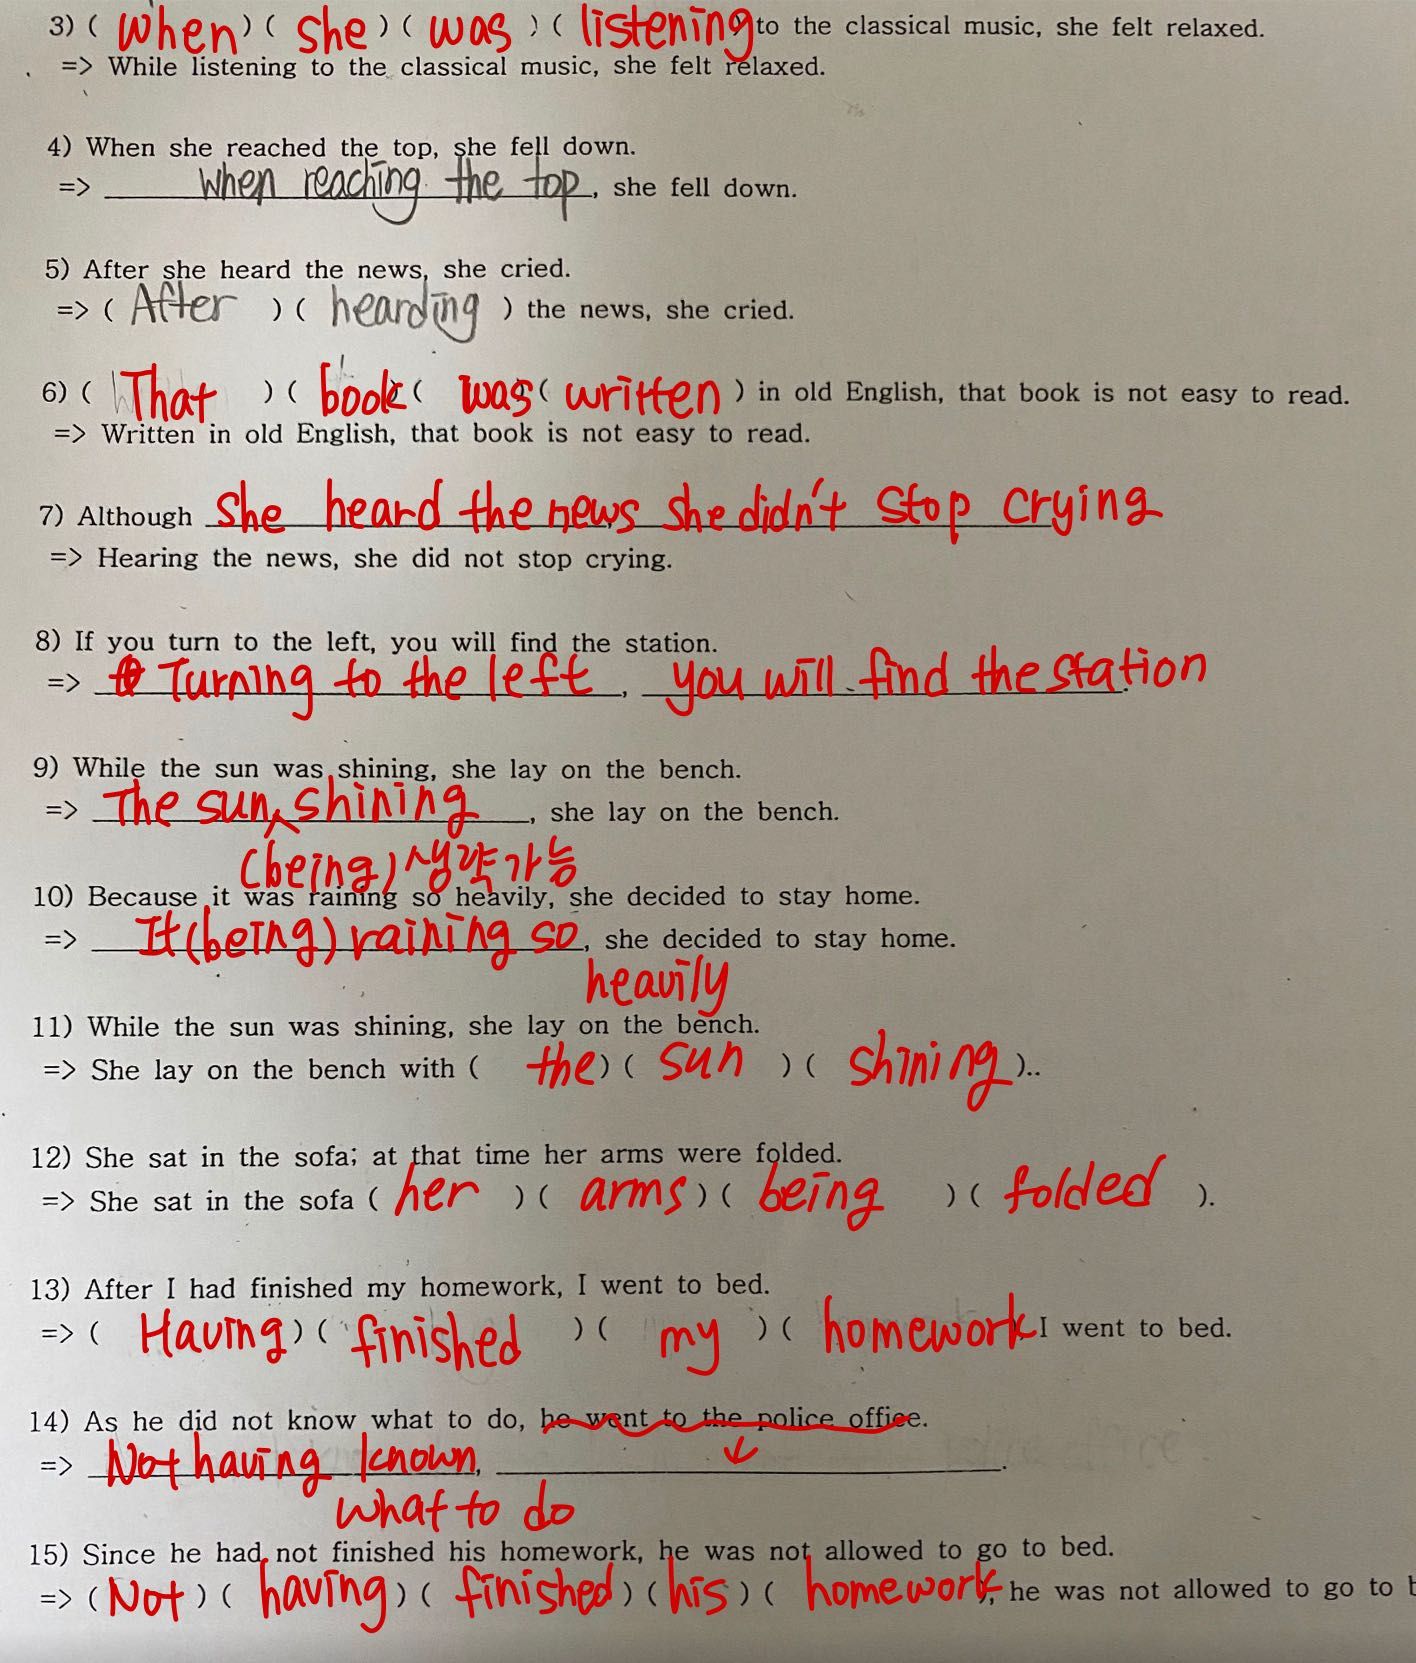 3) ( when ) ( she ) ( was ) ( listening to the classical music, she felt relaxed.
=> While listening to the classical music, she felt relaxed.
4) When she reached the top, she fell down.
=> when reaching the top, she fell down.
5) After she heard the news, she cried.
=> ( After ) ( hearding ) the news, she cried.
6) ( That ) ( book ( was ( written ) in old English, that book is not easy to read.
=> Written in old English, that book is not easy to read.
7) Although she heard the news she didn't stop crying
=> Hearing the news, she did not stop crying.
8) If you turn to the left, you will find the station.
=> Turning to the left, you will find the station.
9) While the sun was shining, she lay on the bench.
=> The sun shining, she lay on the bench.
(being) 생략가능
10) Because it was raining so heavily, she decided to stay home.
=> It (being) raining so, she decided to stay home.
heavily
11) While the sun was shining, she lay on the bench.
=> She lay on the bench with ( the ) ( sun ) ( shining )..
12) She sat in the sofa; at that time her arms were folded.
=> She sat in the sofa ( her ) ( arms ) ( being ) ( folded ).
13) After I had finished my homework, I went to bed.
=> ( Having ) ( finished ) ( my ) ( homework I went to bed.
14) As he did not know what to do, he went to the police office.
=> Not having known, ↓.
what to do
15) Since he had not finished his homework, he was not allowed to go to bed.
=> ( Not ) ( having ) ( finished ) ( his ) ( homework, he was not allowed to go to b